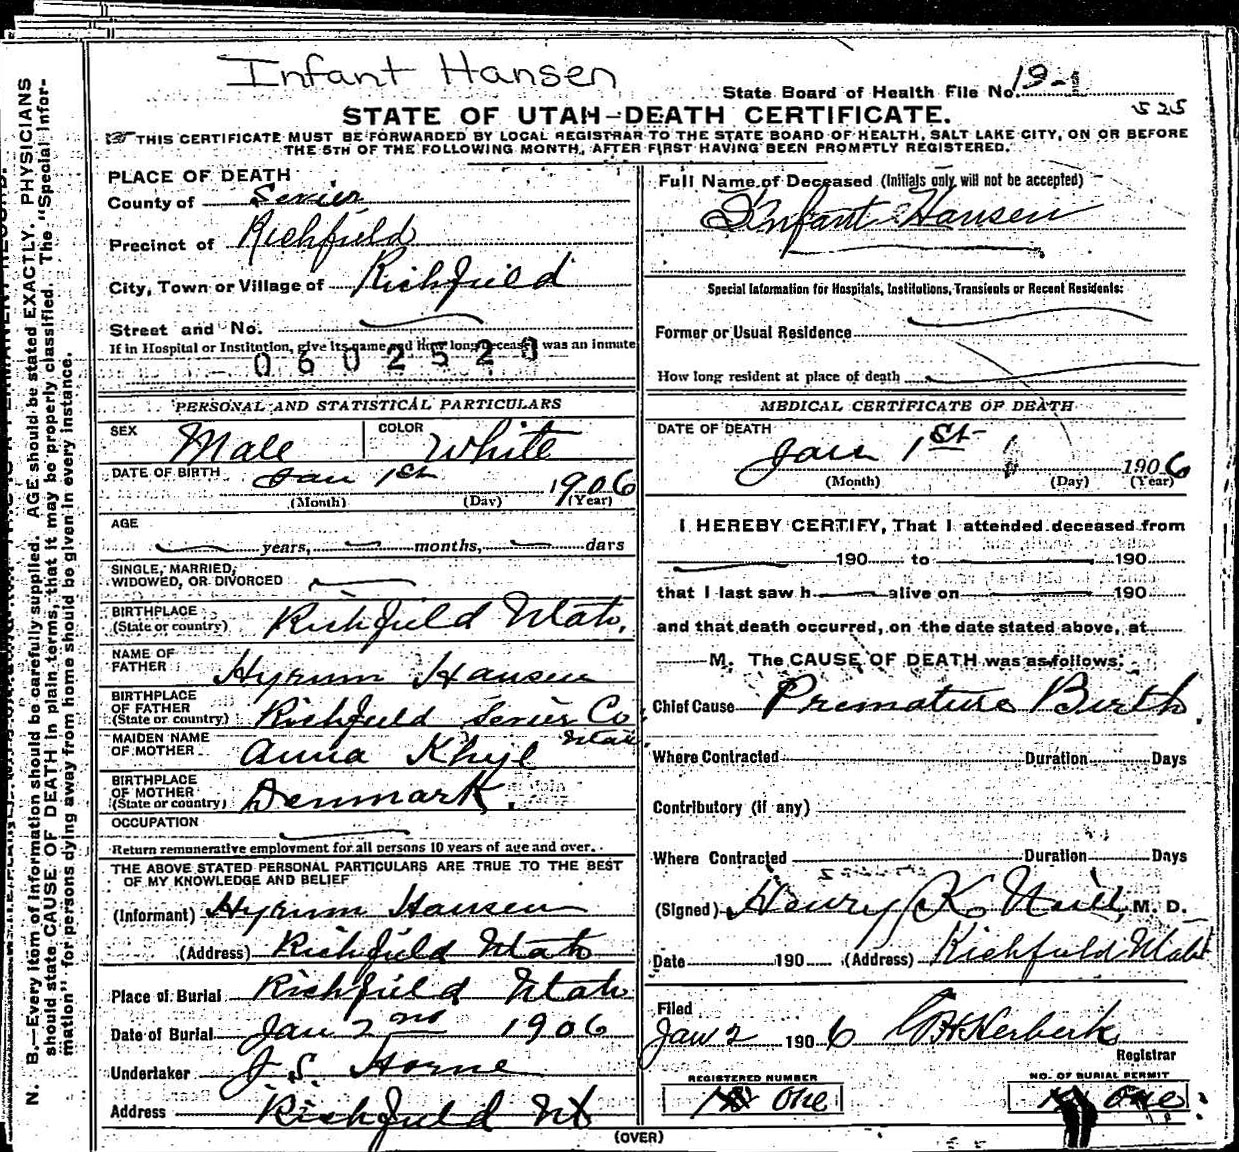 Infant Hansen
State Board of Health File No. 19-
525
STATE OF UTAH—DEATH CERTIFICATE.
THIS CERTIFICATE MUST BE FORWARDED BY LOCAL REGISTRAR TO THE STATE BOARD OF HEALTH, SALT LAKE CITY, ON OR BEFORE
THE 5TH OF THE FOLLOWING MONTH, AFTER FIRST HAVING BEEN PROMPTLY REGISTERED.
PLACE OF DEATH
County of Sevier
Precinct of Richfield
City, Town or Village of Richfield
Street and No.
If in Hospital or Institution, give its name and how long deceased was an inmate
0602523
PERSONAL AND STATISTICAL PARTICULARS
SEX Male COLOR White
DATE OF BIRTH Jan 1st 1906
(Month) (Day) (Year)
AGE
years, months, days
SINGLE, MARRIED,
WIDOWED, OR DIVORCED
BIRTHPLACE
(State or country) Richfield Utah.
NAME OF
FATHER Hyrum Hansen
BIRTHPLACE
OF FATHER
(State or country) Richfield Sevier Co
Utah
MAIDEN NAME
OF MOTHER Anna Khyl
BIRTHPLACE
OF MOTHER
(State or country) Denmark.
OCCUPATION
Return remunerative employment for all persons 10 years of age and over.
THE ABOVE STATED PERSONAL PARTICULARS ARE TRUE TO THE BEST
OF MY KNOWLEDGE AND BELIEF
(Informant) Hyrum Hansen
(Address) Richfield Utah
Place of Burial Richfield Utah
Date of Burial Jan 2nd 1906
Undertaker J S Horne
Address Richfield Ut
Full Name of Deceased (Initials only will not be accepted)
Infant Hansen
Special Information for Hospitals, Institutions, Transients or Recent Residents:
Former or Usual Residence
How long resident at place of death
MEDICAL CERTIFICATE OF DEATH
DATE OF DEATH
Jan 1st 1906
(Month) (Day) (Year)
I HEREBY CERTIFY, That I attended deceased from
190 to 190
that I last saw h alive on 190
and that death occurred, on the date stated above, at
M. The CAUSE OF DEATH was as follows:
Chief Cause Premature Birth.
Where Contracted Duration Days
Contributory (if any)
Where Contracted Duration Days
(Signed) Henry K Neill, M. D.
Date 190 (Address) Richfield Utah
Filed
Jan 2 1906
Registrar
REGISTERED NUMBER
One
NO. OF BURIAL PERMIT
one
(OVER)
N. B.—Every item of information should be carefully supplied. AGE should be stated EXACTLY. PHYSICIANS
should state CAUSE OF DEATH in plain terms, that it may be properly classified. The "Special Infor-
mation" for persons dying away from home should be given in every instance.